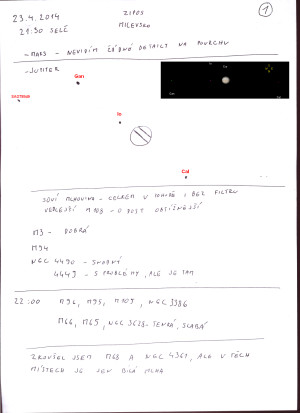 23.4.2014
21:30 SELČ
ZIPOS
MILEVSKO
1
-MARS - NEVIDÍM ŽÁDNÉ DETAILY NA POVRCHU
-JUPITER
Gan
Io
Cal
SOVÍ MLHOVINA - CELKEM V POHODĚ I BEZ FILTRU
VEDLEJŠÍ M108 - O DOST OBTÍŽNĚJŠÍ
M3 - DOBRÁ
M94
NGC 4490 - SNADNÝ
4449 - S PROBLÉMY, ALE JE TAM
22:00
M96, M95, M105, NGC 3386
M66, M65, NGC 3628 - TENKÁ, SLABÁ
ZKOUŠEL JSEM M68 A NGC 4361, ALE V TĚCH
MÍSTECH JE JEN BÍLÁ MLHA